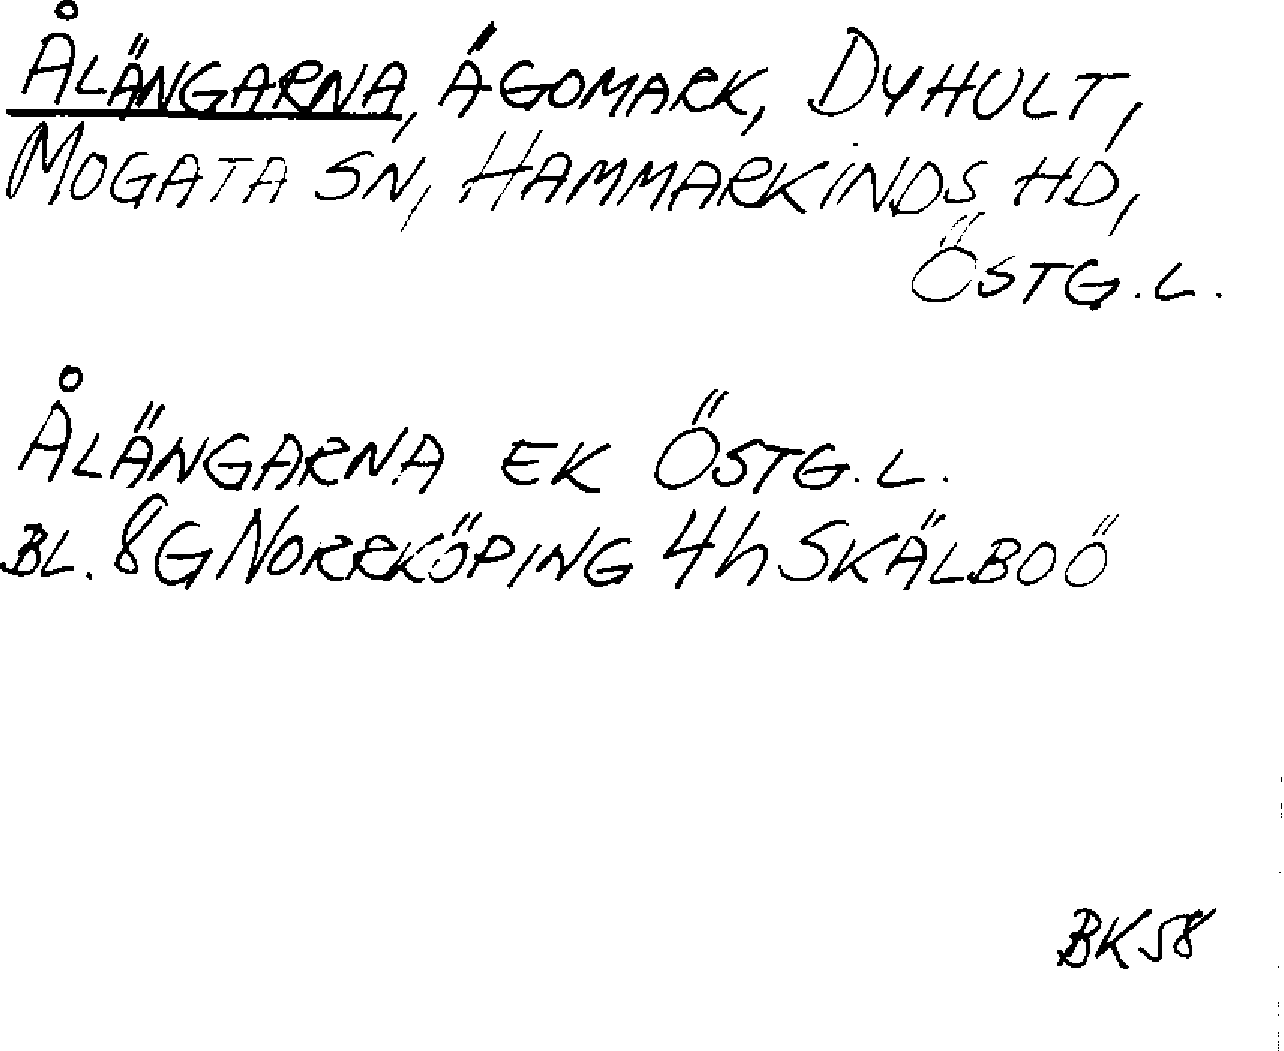 ÅLÄNGARNA, ÄGOMARK, DYHULT,
MOGATA SN, HAMMARKINDS HD,
ÖSTG.L.
ÅLÄNGARNA EK ÖSTG.L.
BL. 8G NORRKÖPING 4h SKÄLBOÖ
BK58